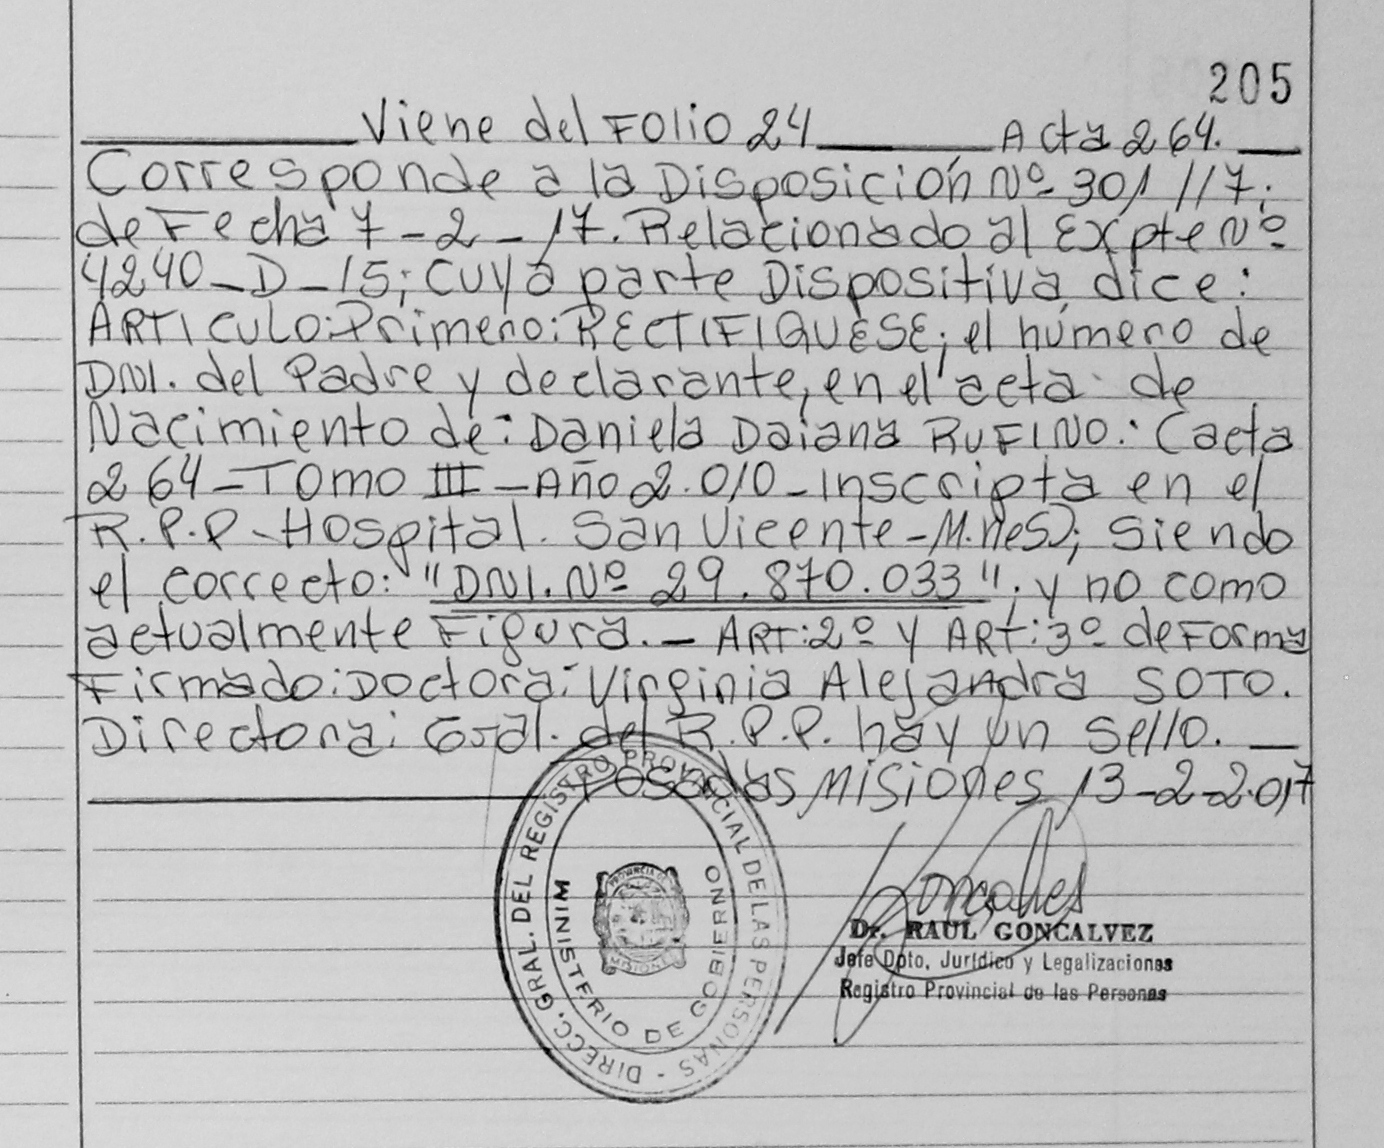 205
Viene del Folio 24 Acta 264.
Corresponde a la Disposición Nº 301/17;
de Fecha 7-2-17. Relacionado al Expte Nº
4240-D-15; cuya parte Dispositiva dice:
ARTICULO: Primero: RECTIFIQUESE; el número de
DNI. del Padre y declarante, en el acta de
Nacimiento de: Daniela Daiana RUFINO: (acta
264-Tomo III-Año 2.010-inscripta en el
R.P.P-Hospital. San Vicente-M.nes); Siendo
el correcto: "DNI. Nº 29.870.033"; y no como
actualmente Figura.- ART:2º y ART:3º de Forma
Firmado: Doctora: Virginia Alejandra SOTO.
Directora: Gral. del R.P.P. hay un Sello.
Posadas Misiones 13-2-2.017
DIRECC. GRAL. DEL REGISTRO PROVINCIAL DE LAS PERSONAS -
MINISTERIO DE GOBIERNO
PROVINCIA DE
MISIONES
Goncalves
Dr. RAUL GONCALVEZ
Jefe Dpto. Jurídico y Legalizaciones
Registro Provincial de las Personas